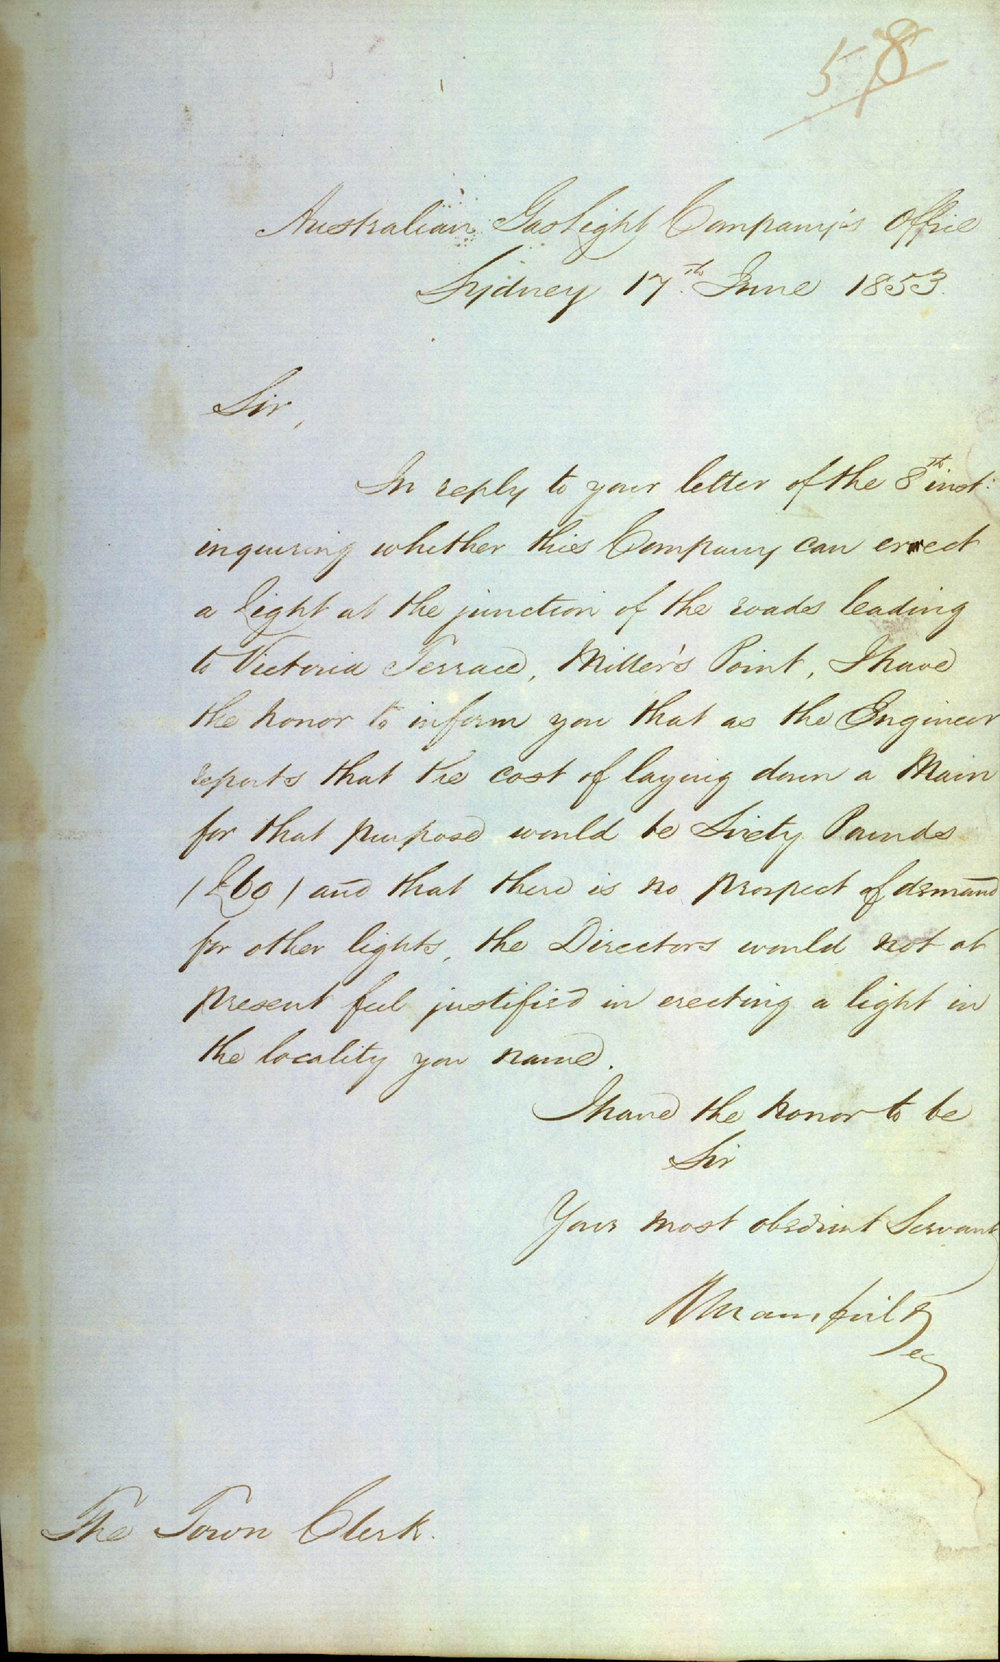 58
Australian Gas Light Company's Office
Sydney 17th June 1853.
Sir,
In reply to your letter of the 8th inst:
inquiring whether this Company can erect
a light at the junction of the roads leading
to Victoria Terrace, Miller's Point, I have
the honor to inform you that as the Engineer
reports that the cost of laying down a Main
for that purpose would be Sixty Pounds
(£60) and that there is no prospect of demand
for other lights, the Directors would not at
present feel justified in erecting a light in
the locality you name.
I have the honor to be
Sir
Your most obedient Servant
R Mansfield
Secy
The Town Clerk.